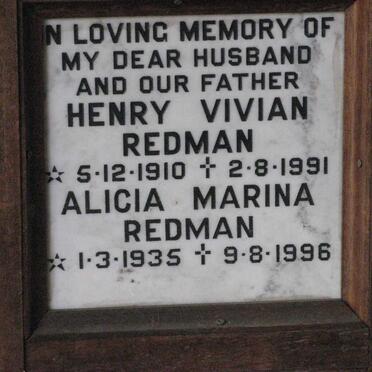 IN LOVING MEMORY OF
MY DEAR HUSBAND
AND OUR FATHER
HENRY VIVIAN
REDMAN
☆ 5·12·1910 ✝ 2·8·1991
ALICIA MARINA
REDMAN
☆ 1·3·1935 ✝ 9·8·1996